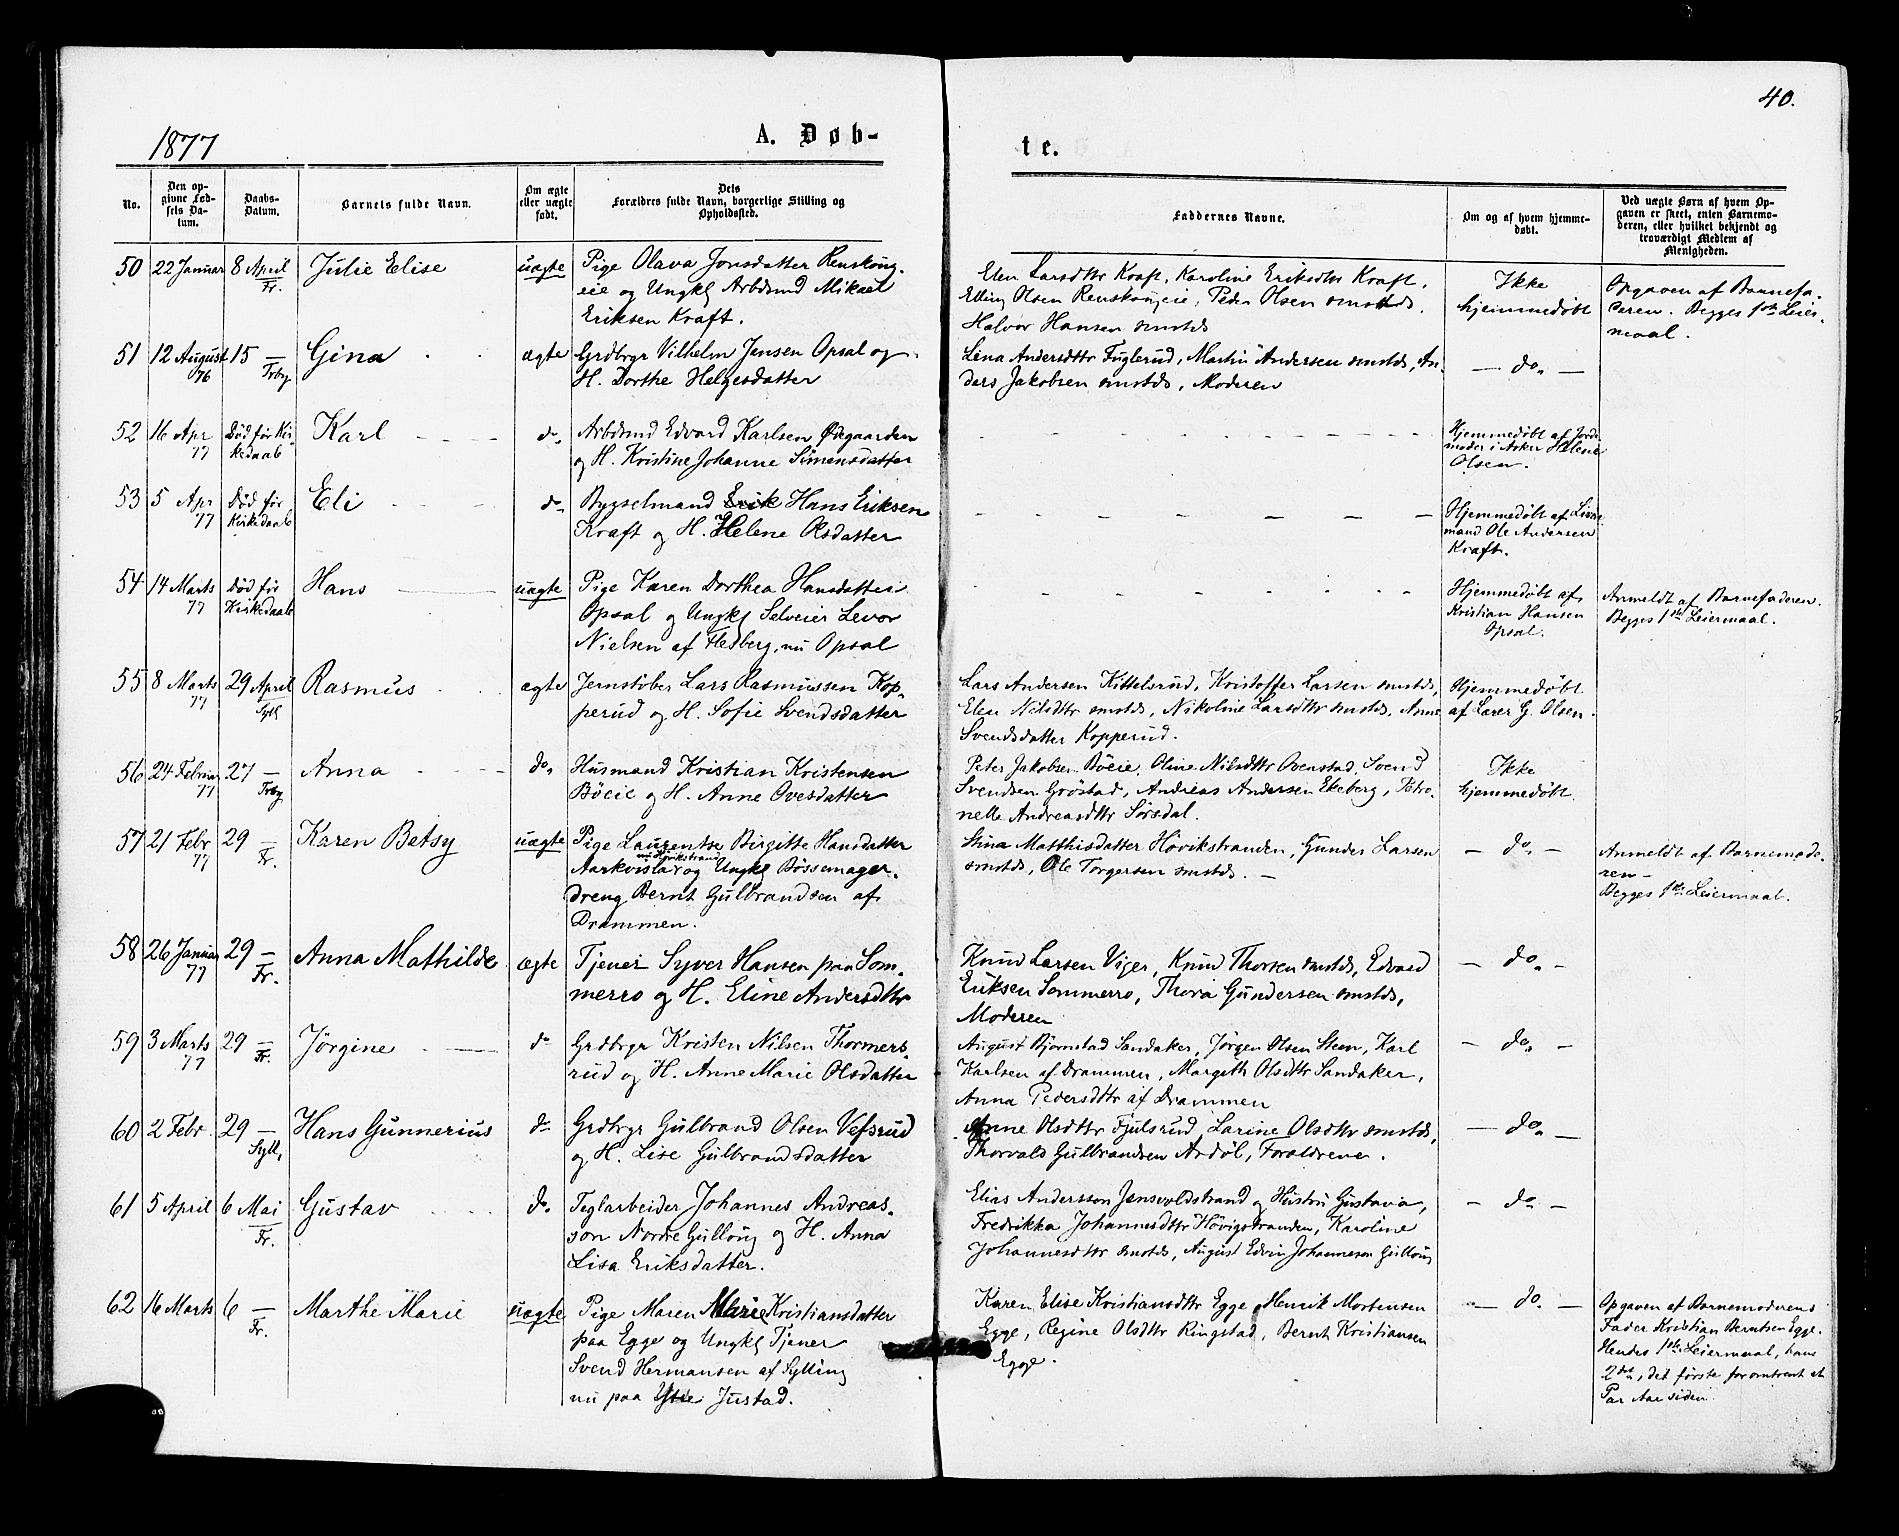 40.
1877
A. Døb-
te.
No.
Den op-
givne Fød-
sels Da-
tum.
Daabs-
Datum.
Barnets fulde Navn.
Om ægte
eller uægte
født.
Dets
Forældres fulde Navn, borgerlige Stilling og
Opholdssted.
Faddernes Navne.
Om og af hvem hjemme-
døbt.
Ved uægte Børn af hvem Op-
gaven er skeet, enten Barnemo-
deren, eller hvilket bekjendt og
troværdigt Medlem af
Menigheden.
50 22 Januar 8 April Fr. Julie Elise uægte
Pige Olava Jonsdatter Renskoug-
eie og Ungkl Arbdsmd Mikael
Eriksen Kraft.
Elen Larsdttr Kraft, Karoline Eriksdttr Kraft,
Elling Olsen Renskougeie, Peder Olsen smstds.
Halvor Hansen smstds
Ikke
hjemmedøbt
Opgaven af Barnefa-
deren. Begges 1ste Leier-
maal.
51 12 August 76 15 — Frby Gina ægte
Grdbrgr Vilhelm Jensen Opsal og
H. Dorthe Helgesdatter
Lina Andersdttr Fuglerud, Martin Andersen smstds, An-
ders Jakobsen smstds, Moderen
— do. —
52 16 Apr 77 Død før Kir-
kedaab Karl do.
Arbdsmd Edvard Karlsen Ødegaarden
og H. Kristine Johanne Simensdatter
Hjemmedøbt af Jorde-
moder i Asker Helene
Olsen.
53 5 Apr 77 Død før
Kirkedaab Eli do.
Bygselmand Erik Hans Eriksen
Kraft og H. Helene Olsdatter
Hjemmedøbt af
mand Ole Andersen
Kraft.
54 14 Marts 77 Død før
Kirkedaab Hans uægte
Pige Karen Dorthea Hansdatter
Opsal og Ungkl Selveier Levor
Nielsen af Flesberg, nu Opsal
Hjemmedøbt af
Kristian Hansen
Opsal.
Anmeldt af Barnefaderen.
Begges 1ste Leiermaal.
55 8 Marts 77 29 April Syll Rasmus ægte
Jernstøber Lars Rasmussen Kop-
perud og H. Sofie Svendsdatter
Lars Andersen Kittelsrud, Kristoffer Larsen smstds,
Elen Nilsdttr smstds, Nikoline Larsdttr smstds, Anne
Svendsdatter Kopperud.
Hjemmedøbt
af Lærer G. Olsen.
56 24 Februar 77 27 — Frby Anna do.
Husmand Kristian Kristensen
Böeie og H. Anne Ovesdatter
Peter Jakobsen Böeie, Oline Nilsdttr Ovenstad, Svend
Svendsen Grøstad, Andreas Andersen Ekeberg, Petro-
nelle Andreasdttr Sørsdal.
Ikke
hjemmedøbt
57 21 Febr 77 29 — Fr. Karen Betsy uægte
Pige Laurentse Birgitte Hansdatter
Aarkvisla og Ungkl Bössemager-
dreng Bernt Gulbrandsen af
Drammen.
Stina Matthisdatter Hövikstranden, Gunder Larsen
smstds, Ole Torgersen smstds. —
— do. —
Anmeldt af Barnemode-
ren —
Begges 1ste Leiermaal.
58 26 Januar 77 29 — Fr. Anna Mathilde ægte
Tjener Syver Hansen paa Som-
merro og H. Eline Andersdttr
Knud Larsen Viger, Knud Thorsen smstds, Edvard
Eriksen Sommerro, Thora Gundersen smstds,
Moderen
— do. —
59 3 Marts 77 29 — Fr. Jörgine do
Grdbrgr Kristen Nilsen Thormers-
rud og H. Anne Marie Olsdatter
August Bjørnstad Sandaker, Jörgen Olsen Steen, Karl
Karlsen af Drammen, Margith Olsdttr Sandaker,
Anna Pedersdttr af Drammen
— do. —
60 2 Febr 29 — Syll, Hans Gunnerius do
Grdbrgr Gulbrand Olsen Vefsrud
og H. Lise Gulbrandsdatter
Anne Olsdttr Fjulsrud, Larine Olsdttr smstds,
Thorvald Gulbrandsen Ardöl, Foraldrene.
— do. —
61 5 April 6 Mai Fr. Gustav do.
Teglarbeider Johannes Andreas-
son Nordre Gulloug og H. Anna
Lisa Eriksdatter.
Elias Andersson Jensvoldstrand og Hustru Gustava,
Fredrikka Johannesdttr Hövigstranden, Karoline
Johannesdttr smstds, August Edvin Johanneson Gulloug
— do —
62 16 Marts 6 — Fr. Marthe Marie uægte
Pige Maren Marie Kristiansdatter
paa Egge og Ungkl Tjener
Svend Hermansen af Sylling
nu paa Ytre Justad.
Karen Elise Kristiansdttr Egge, Henrik Mortensen
Egge, Regine Olsdttr Ringstad, Bernt Kristiansen
Egge.
— do. —
Opgaven af Barnemoderens
Fader Kristian Berntsen Egge.
Hendes 1ste Leiermaal, hans
2det, det förste for omtrent et
Par Aar siden.